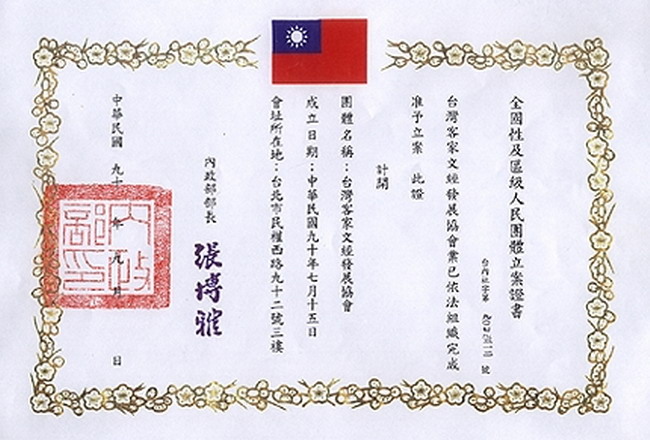 全國性及區級人民團體立案證書
台內社字第 號
台灣客家文經發展協會業已依法組織完成
准予立案 此證
計開
團體名稱：台灣客家文經發展協會
成立日期：中華民國九十年七月十五日
會址所在地：台北市民權西路九十二號三樓
內政部部長
張博雅
中華民國 九十 年 九 月 日
內政部印